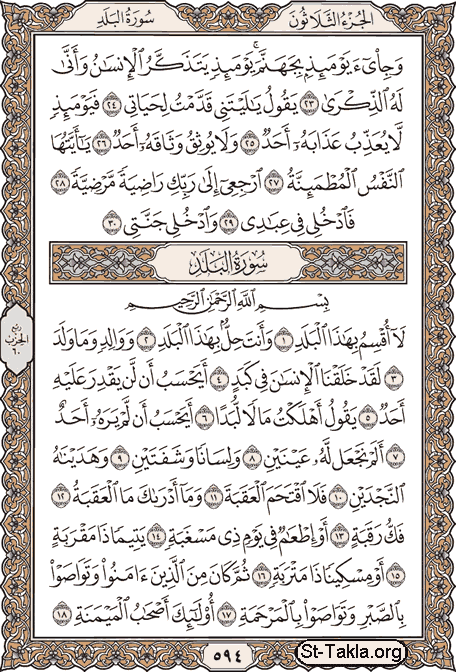 سُورَةُ البَلَدِ
الجُزْءُ الثَّلَاثُونَ
وَجِاْيٓءَ يَوْمَئِذٍۭ بِجَهَنَّمَۚ يَوْمَئِذٍ يَتَذَكَّرُ ٱلْإِنسَٰنُ وَأَنَّىٰ
لَهُ ٱلذِّكْرَىٰ ٢٣ يَقُولُ يَٰلَيْتَنِى قَدَّمْتُ لِحَيَاتِى ٢٤ فَيَوْمَئِذٍ
لَّا يُعَذِّبُ عَذَابَهُۥٓ أَحَدٌ ٢٥ وَلَا يُوثِقُ وَثَاقَهُۥٓ أَحَدٌ ٢٦ يَٰٓأَيَّتُهَا
ٱلنَّفْسُ ٱلْمُطْمَئِنَّةُ ٢٧ ٱرْجِعِىٓ إِلَىٰ رَبِّكِ رَاضِيَةً مَّرْضِيَّةً ٢٨
فَٱدْخُلِى فِى عِبَٰدِى ٢٩ وَٱدْخُلِى جَنَّتِى ٣٠
سُورَةُ البَلَدِ
بِسْمِ ٱللَّهِ ٱلرَّحْمَٰنِ ٱلرَّحِيمِ
لَآ أُقْسِمُ بِهَٰذَا ٱلْبَلَدِ ١ وَأَنتَ حِلٌّۢ بِهَٰذَا ٱلْبَلَدِ ٢ وَوَالِدٍ وَمَا وَلَدَ
٣ لَقَدْ خَلَقْنَا ٱلْإِنسَٰنَ فِى كَبَدٍ ٤ أَيَحْسَبُ أَن لَّن يَقْدِرَ عَلَيْهِ
أَحَدٌ ٥ يَقُولُ أَهْلَكْتُ مَالًا لُّبَدًا ٦ أَيَحْسَبُ أَن لَّمْ يَرَهُۥٓ أَحَدٌ
٧ أَلَمْ نَجْعَل لَّهُۥ عَيْنَيْنِ ٨ وَلِسَانًا وَشَفَتَيْنِ ٩ وَهَدَيْنَٰهُ
ٱلنَّجْدَيْنِ ١٠ فَلَا ٱقْتَحَمَ ٱلْعَقَبَةَ ١١ وَمَآ أَدْرَىٰكَ مَا ٱلْعَقَبَةُ ١٢
فَكُّ رَقَبَةٍ ١٣ أَوْ إِطْعَٰمٌ فِى يَوْمٍ ذِى مَسْغَبَةٍ ١٤ يَتِيمًا ذَا مَقْرَبَةٍ
١٥ أَوْ مِسْكِينًا ذَا مَتْرَبَةٍ ١٦ ثُمَّ كَانَ مِنَ ٱلَّذِينَ ءَامَنُوا۟ وَتَوَاصَوْا۟
بِٱلصَّبْرِ وَتَوَاصَوْا۟ بِٱلْمَرْحَمَةِ ١٧ أُو۟لَٰٓئِكَ أَصْحَٰبُ ٱلْمَيْمَنَةِ ١٨
ربع
الحزب
٦٠
٥٩٤
St-Takla.org